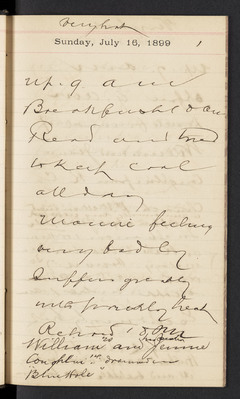 very hot
Sunday, July 16, 1899
up 9 am
Breakfasted 10 am
Read and tried
to keep cool
all day
Mamie feeling
very badly
Suffers greatly
with prickly heat
Retired 10 PM
William and Jennie
Coughlin drowned in
Blue Hole